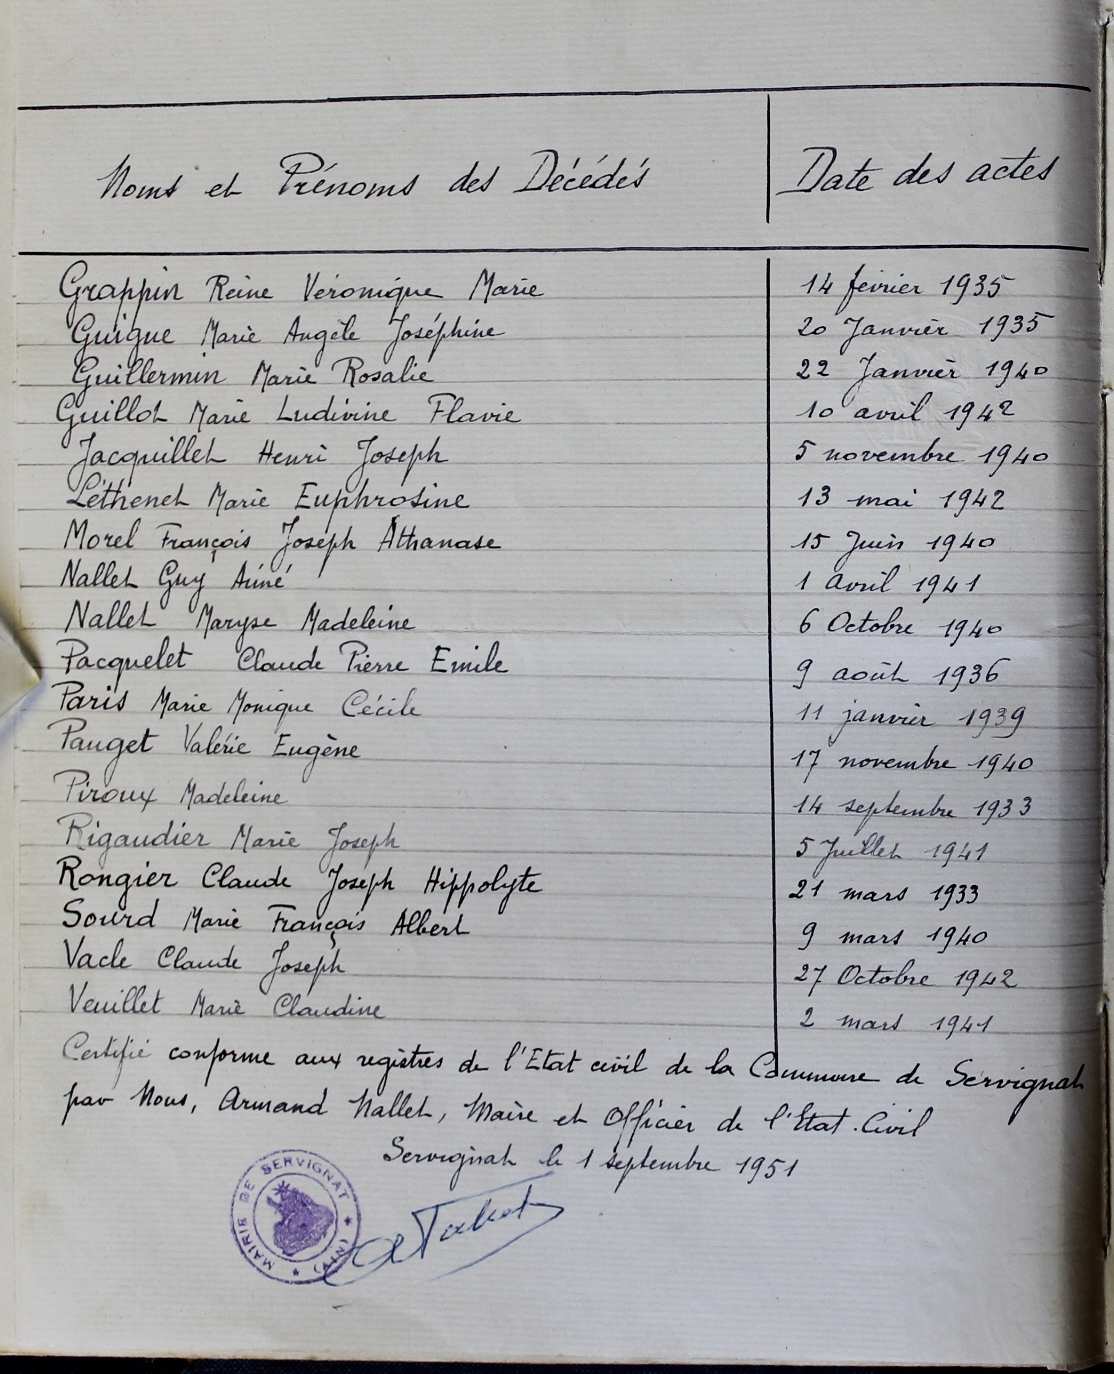 Noms et Prénoms des Décédés Date des actes
Grappin Reine Véronique Marie 14 février 1935
Guigue Marie Angèle Joséphine 20 Janvier 1935
Guillermin Marie Rosalie 22 Janvier 1940
Guillot Marie Ludivine Flavie 10 avril 1942
Jacquillet Henri Joseph 5 novembre 1940
Léthenet Marie Euphrosine 13 mai 1942
Morel François Joseph Athanase 15 Juin 1940
Nallet Guy Aimé 1 avril 1941
Nallet Maryse Madeleine 6 Octobre 1940
Pacquelet Claude Pierre Emile 9 août 1936
Paris Marie Monique Cécile 11 janvier 1939
Pauget Valérie Eugène 17 novembre 1940
Piroux Madeleine 14 septembre 1933
Rigaudier Marie Joseph 5 Juillet 1941
Rongier Claude Joseph Hippolyte 21 mars 1933
Sourd Marie François Albert 9 mars 1940
Vacle Claude Joseph 27 Octobre 1942
Veuillet Marie Claudine 2 mars 1941
Certifié conforme aux registres de l'Etat civil de la Commune de Servignat
par Nous, Armand Nallet, Maire et Officier de l'Etat-Civil
Servignat le 1 septembre 1951
MAIRIE DE SERVIGNAT * (AIN) *